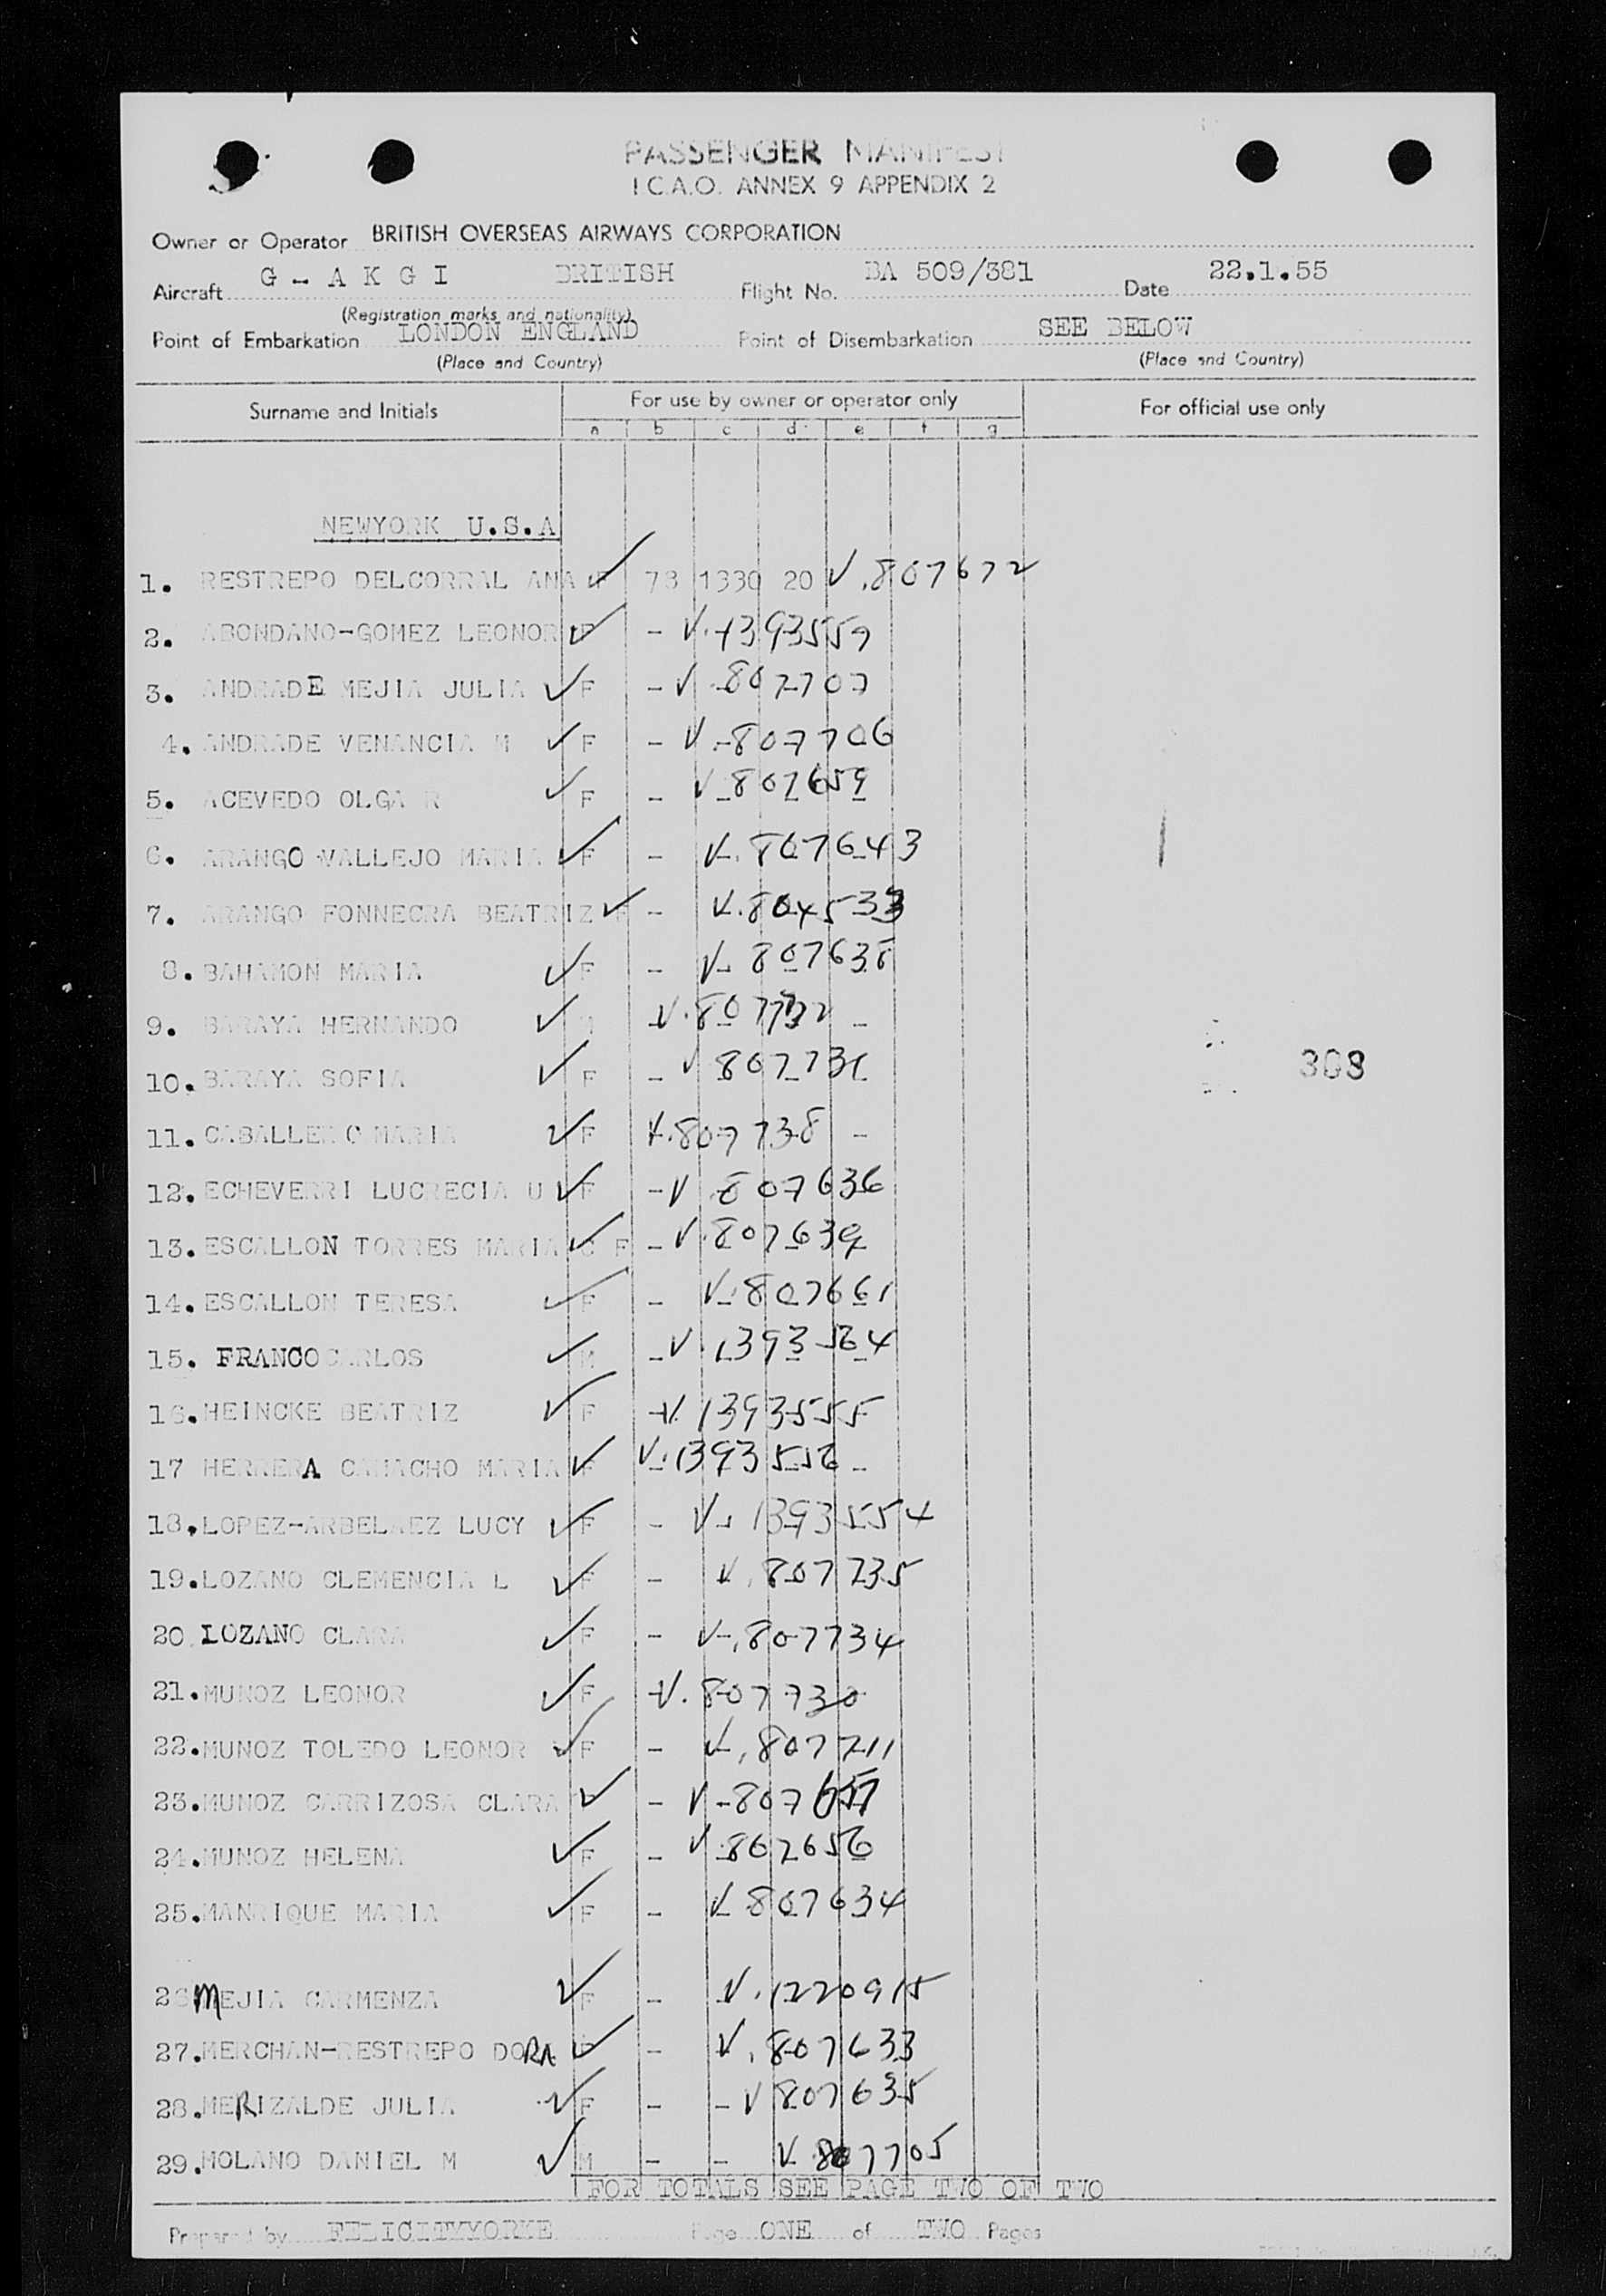 PASSENGER MANIFEST
I.C.A.O. ANNEX 9 APPENDIX 2
Owner or Operator BRITISH OVERSEAS AIRWAYS CORPORATION
Aircraft G - A K G I BRITISH Flight No. BA 509/381 Date 22.1.55
(Registration marks and nationality)
Point of Embarkation LONDON ENGLAND Point of Disembarkation SEE BELOW
(Place and Country) (Place and Country)
Surname and Initials For use by owner or operator only For official use only
a b c d e f g
NEWYORK U.S.A
1. RESTREPO DELCORRAL ANA F 78 1330 20 V.807672
2. ABONDANO-GOMEZ LEONOR F - V.1393559
3. ANDRADE MEJIA JULIA F - V.807707
4. ANDRADE VENANCIA M F - V.807706
5. ACEVEDO OLGA R F - V 807659
6. ARANGO VALLEJO MARIA F - V.807643
7. ARANGO FONNEGRA BEATRIZ F - V.804533
8. BAHAMON MARIA F - V 807638
9. BARAYA HERNANDO M V.807732 -
10. BARAYA SOFIA F - V 807731
11. CABALLERO MARIA F V.807738 -
12. ECHEVERRI LUCRECIA U F - V 807636
13. ESCALLON TORRES MARIA C F - V.807639
14. ESCALLON TERESA F - V.807661
15. FRANCO CARLOS M - V.1393564
16. HEINCKE BEATRIZ F V.1393555
17 HERRERA CAMACHO MARIA F V.1393556 -
18. LOPEZ-ARBELAEZ LUCY F - V. 1393554
19. LOZANO CLEMENCIA L F - V.807735
20 LOZANO CLARA F - V.807734
21. MUNOZ LEONOR F V.807730
22. MUNOZ TOLEDO LEONOR F - V.807711
23. MUNOZ CARRIZOSA CLARA - V 807657
24. MUNOZ HELENA F - V.807656
25. MANRIQUE MARIA F - V 807634
26 MEJIA CARMENZA F - V.1220915
27. MERCHAN-RESTREPO DORA F - V.807633
28. MERIZALDE JULIA F - - V 807635
29. MOLANO DANIEL M M - - V 807705
FOR TOTALS SEE PAGE TWO OF TWO
308
Prepared by FELICITYYORKE Page ONE of TWO Pages